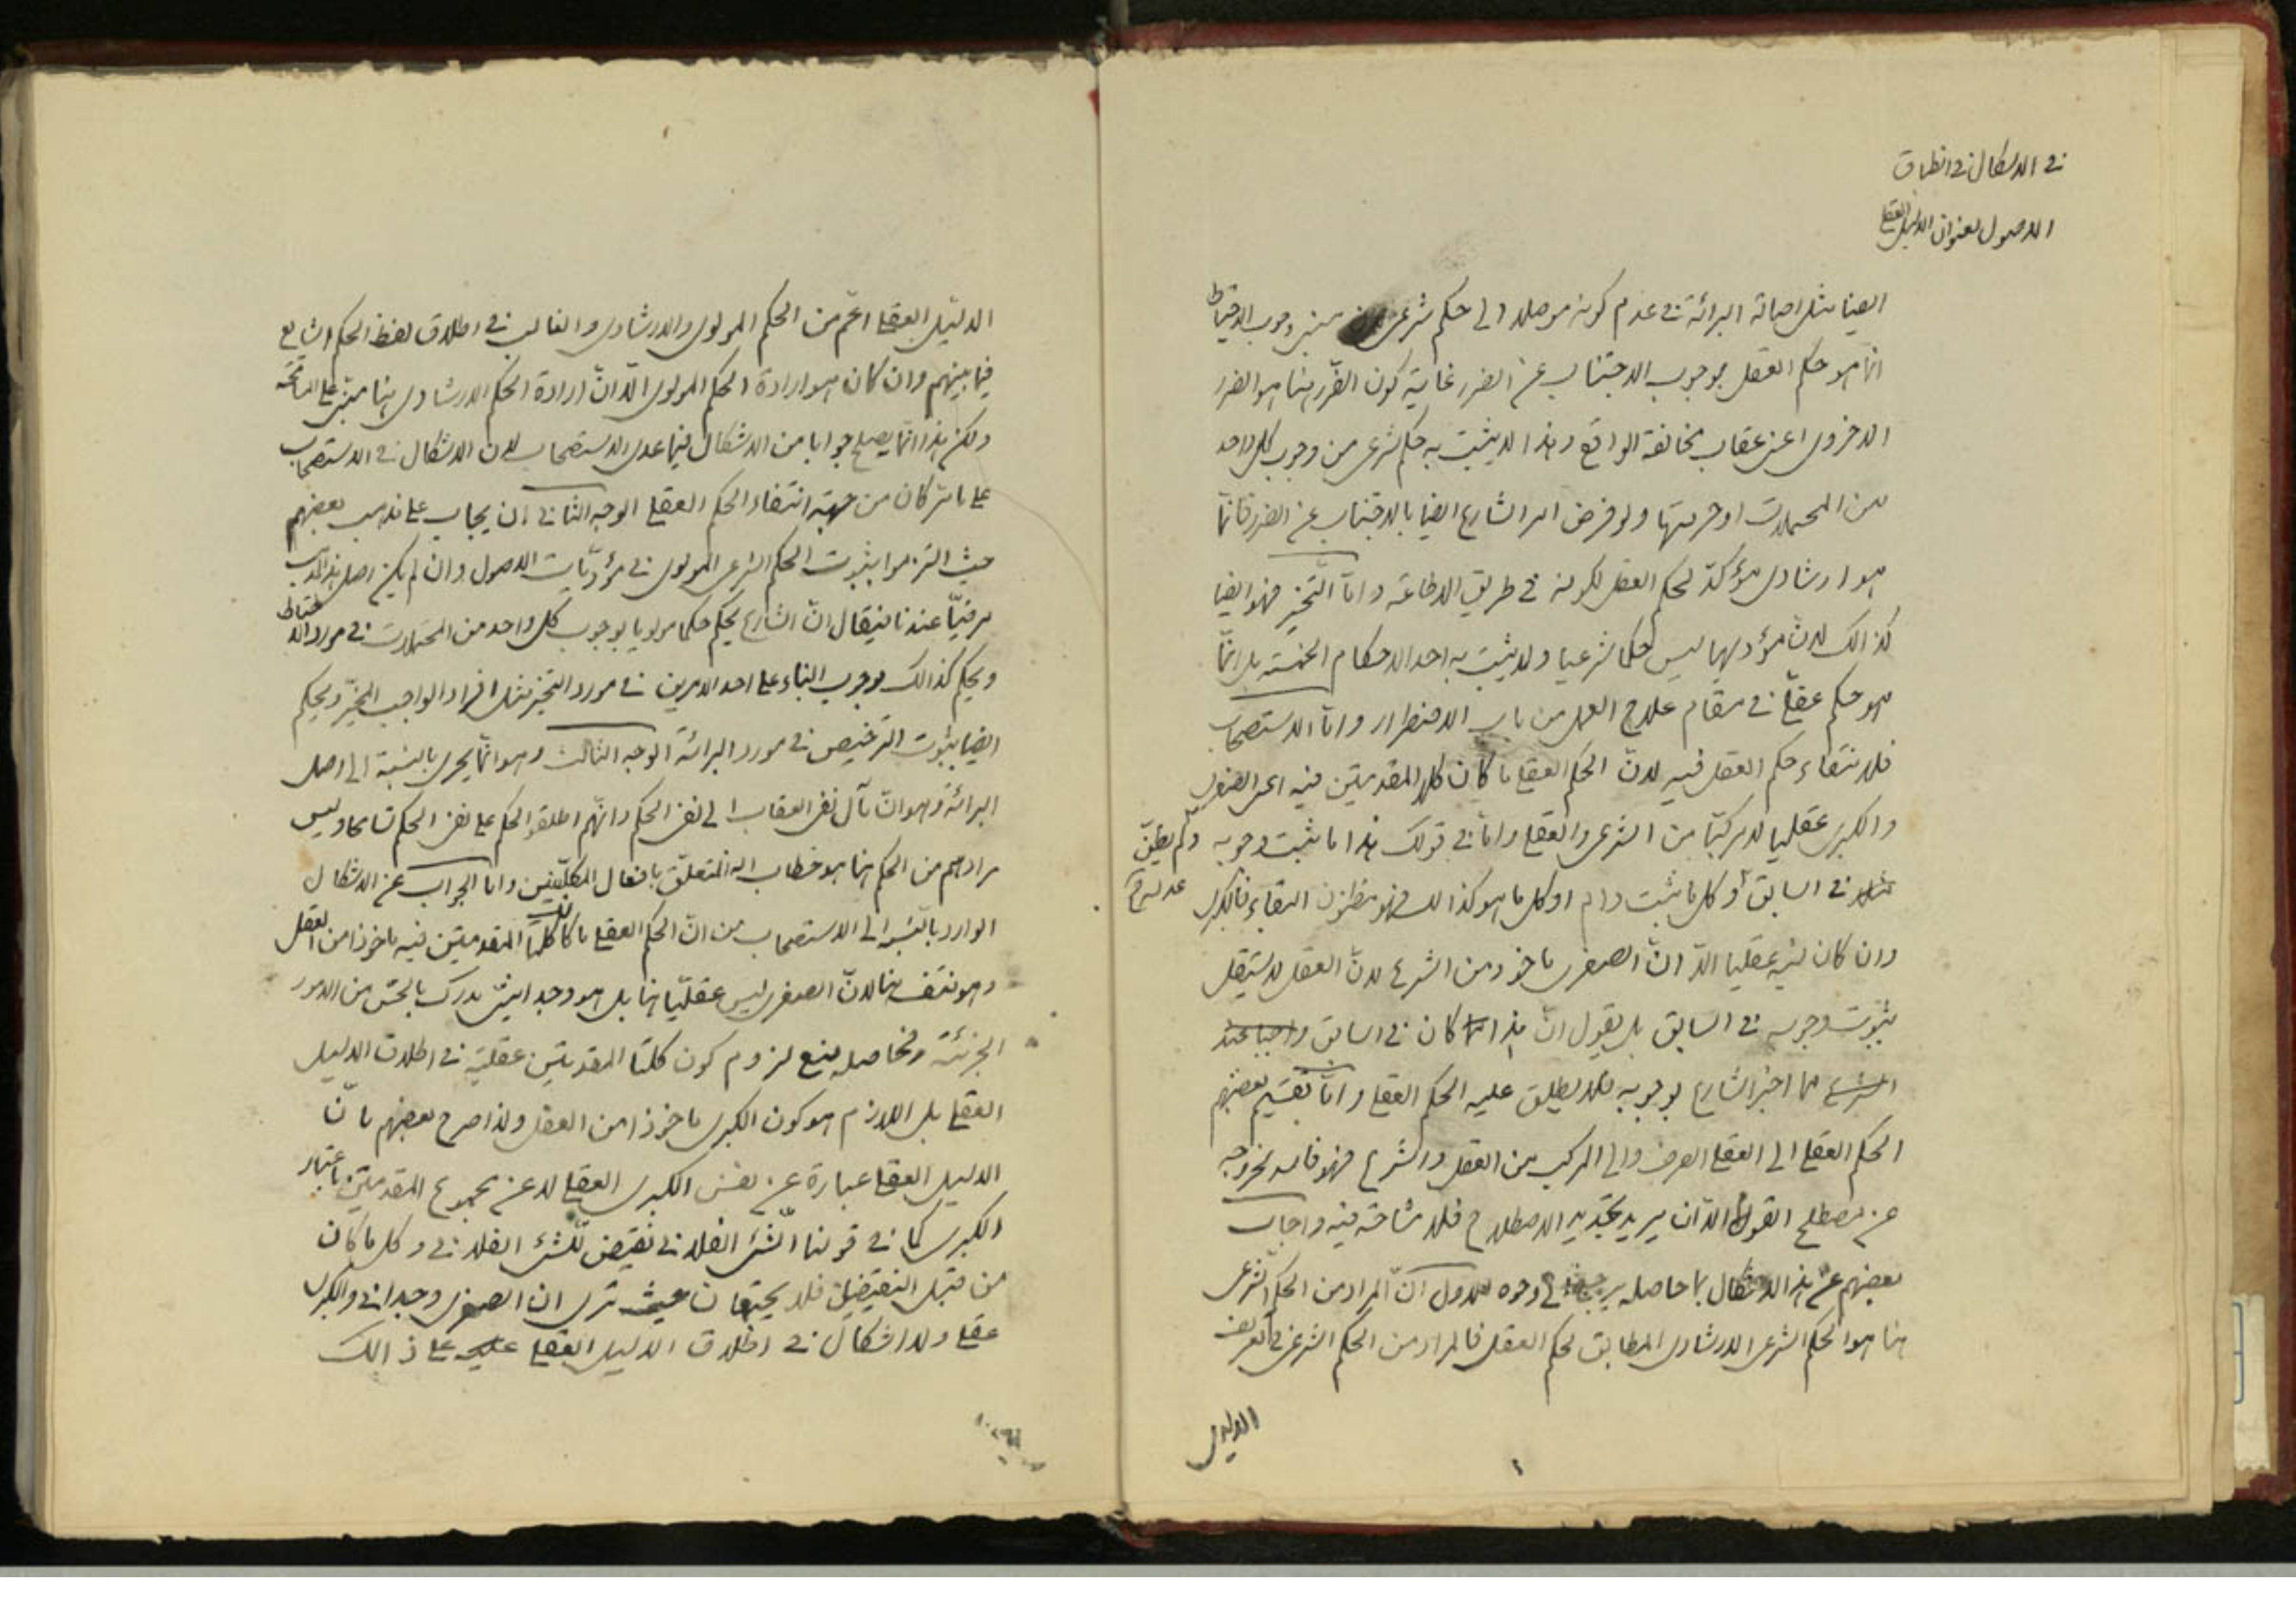 في الاشكال في انطباق
الاصول بعنوان الدليل العقلي
ايضا مثل اصالة البرائة في عدم كونه موصلا الى حكم شرعي مبنى وجوب الاحتياط
انما هو حكم العقل بوجوب الاجتناب عن الضرر غاية كون الضرر هنا هو الضرر
الاخروى اعنى عقاب مخالفة الواقع وهذا لا يثبت به حكم شرعى من وجوب كل واحد
من المحتملات او حرمتها ولو فرض امر الشارع ايضا بالاجتناب عن الضرر فانما
هو ارشادى مؤكد لحكم العقل لكونه في طريق الاطاعة واما التخيير فهو ايضا
كذالك لان مؤديها ليس حكما شرعيا ولا يثبت به احد الاحكام الخمسة بل انما
هو حكم عقلى في مقام علاج العمل من باب الاضطرار واما الاستصحاب
فلانتفاء حكم العقل فيه لان الحكم العقلى ما كان كلا المقدمتين فيه اعنى الصغرى
والكبرى عقليا لا مركبا من الشرعى والعقلى واما في قولك هذا ما ثبت وجوبه ولم يظن
عدمه في السابق وكل ما ثبت دام او كل ما هو كذالك فهو مظنون البقاء فالكبرى
وان كان فيه عقليا الا ان الصغرى ماخوذ من الشرع لان العقل لا يستقل
بثبوت وجوبه في السابق بل يقول ان هذا انما كان في السابق واجبا عند
الشرع مما اخبر الشارع بوجوبه فلا يطلق عليه الحكم العقلى واما تقسيم بعضهم
الحكم العقلى الى العقلى الصرف والى المركب من العقل والشرع فهو فاسد لخروجه
عن مصطلح القوم الا ان يريد تجديد الاصطلاح فلا مشاحة فيه واجاب
بعضهم عن هذا الاشكال بما حاصله يرجع الى وجوه الاول ان المراد من الحكم الشرعى
هنا هو الحكم الشرعى الارشادى المطابق لحكم العقل فالمراد من الحكم الشرعى في تعريف
الدليل
الدليل العقلى اعم من الحكم المولوى والارشادى والغالب في اطلاق لفظ الحكم الشايع
فيما بينهم وان كان هو ارادة الحكم المولوى الا ان ارادة الحكم الارشادى هنا مبنى على المسامحة
ولكن هذا انما يصلح جوابا من الاشكال فيما عدى الاستصحاب لان الاشكال في الاستصحاب
على ما مر كان من جهة انتفاء الحكم العقلى الوجه الثانى ان يجاب على مذهب بعضهم
حيث التزموا بثبوت الحكم الشرعى المولوى في مؤديات الاصول وان لم يكن اصل هذا المذهب
مرضيا عندنا فيقال ان الشارع يحكم حكما مولويا بوجوب كل واحد من المحتملات في مورد الاحتياط
ويحكم كذالك بوجوب البناء على احد الامرين في مورد التخيير مثل افراد الواجب المخير ويحكم
ايضا بثبوت الترخيص في مورد البرائة الوجه الثالث وهو انما يجرى بالنسبة الى اصل
البرائة وهو ان مآل نفى العقاب الى نفى الحكم وانهم اطلقوا الحكم على نفى الحكم تسامحا وليس
مرادهم من الحكم هنا هو خطاب الله المتعلق بافعال المكلفين واما الجواب عن الاشكال
الوارد بالنسبة الى الاستصحاب من ان الحكم العقلى ما كان كلتا المقدمتين فيه ماخوذا من العقل
وهو منتف هنا لان الصغرى ليس عقليا هنا بل هو وجدانيت يدرك بالحس من الامور
الجزئية فحاصله منع لزوم كون كلتا المقدمتين عقلية في اطلاق الدليل
العقلى بل اللازم هو كون الكبرى ماخوذا من العقل ولذا صرح بعضهم بان
الدليل العقلى عبارة عن نفس الكبرى العقلى لا عن مجموع المقدمتين باعتبار
الكبرى كما في قولنا الشئ الفلانى نقيض للشئ الفلانى وكل ما كان
من قبيل النقيضين فلا يجتمعان حيث ترى ان الصغرى وجدانى والكبرى
عقلى ولا اشكال في اطلاق الدليل العقلى على ذالك